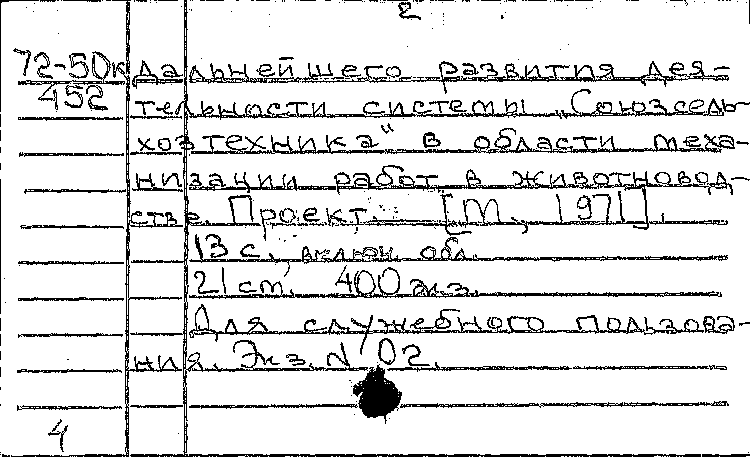 2
72-50к дальнейшего развития дея-
452 тельности системы „Союзсель-
хозтехника" в области меха-
низации работ в животновод-
стве. Проект. [М., 1971].
13 с., включ. обл.
21 см. 400 экз.
Для служебного пользова-
ния. Экз. N 02.
4